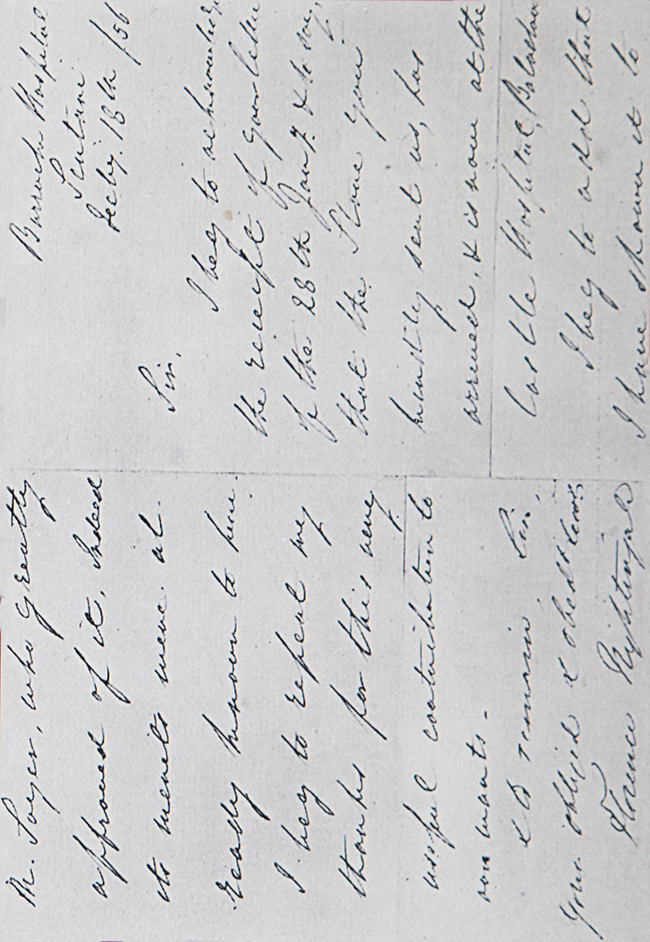 Barrack Hospital
Scutari
Feby. 18th /56
Sir,
I beg to acknowledge
the receipt of your letter
of the 28th Jany. & to say,
that the Stove you
kindly sent us, has
arrived, & is now at the
Castle Hospital, Balaclava
I beg to add that
I have shown it to
M. Soyer, who greatly
approved of it. Indeed
its merits were al-
ready known to him.
I beg to repeat my
thanks for this very
useful contribution to
our wants.
& to remain Sir,
Your obliged & obedt servt
Florence Nightingale